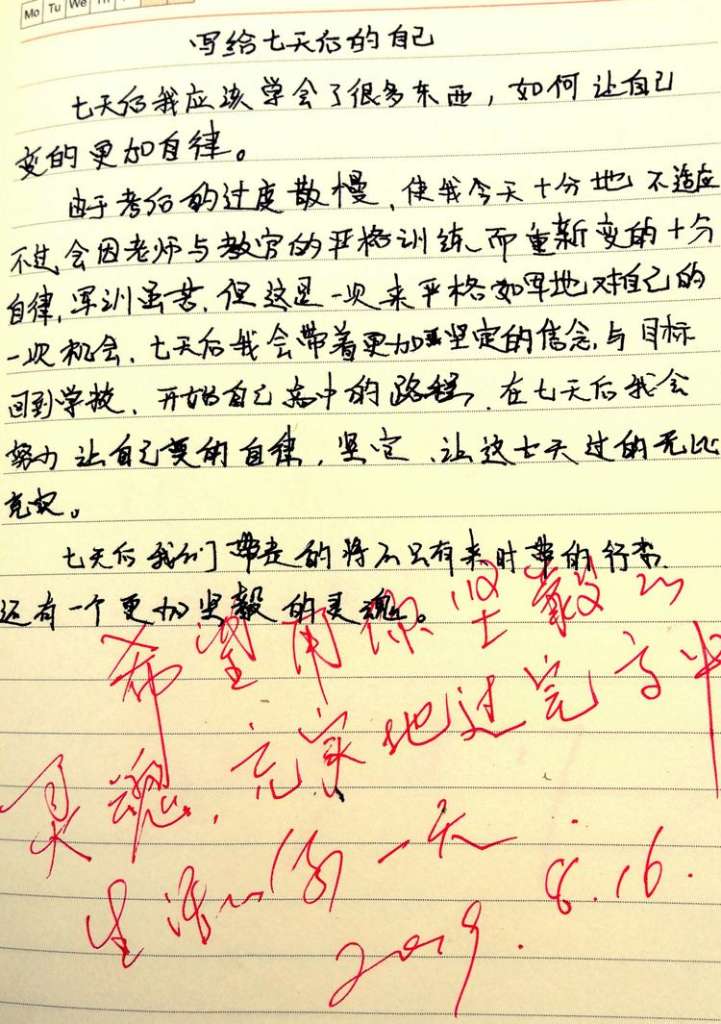 Mo Tu We Th
写给七天后的自己
七天后我应该学会了很多东西，如何让自己
变的更加自律。
由于考后的过度散慢，使我今天十分地不适应
不过会因老师与教官的严格训练、而重新变的十分
自律，军训虽苦，但这是一次来严格如军地对自己的
一次机会，七天后我会带着更加坚定的信念，与目标
回到学校，开始自己高中的路程，在七天后我会
努力让自己变的自律，坚定，让这七天过的无比
充实。
七天后我们带走的将不只有来时带的行李，
还有一个更加坚毅的灵魂。
希望用你坚毅的
灵魂，充实地过完高中
生活的每一天。
2019.8.16.